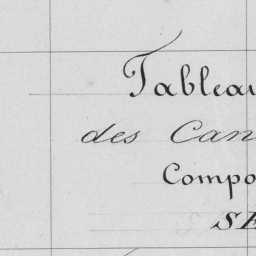 Tableau
des Can
Compo
SE